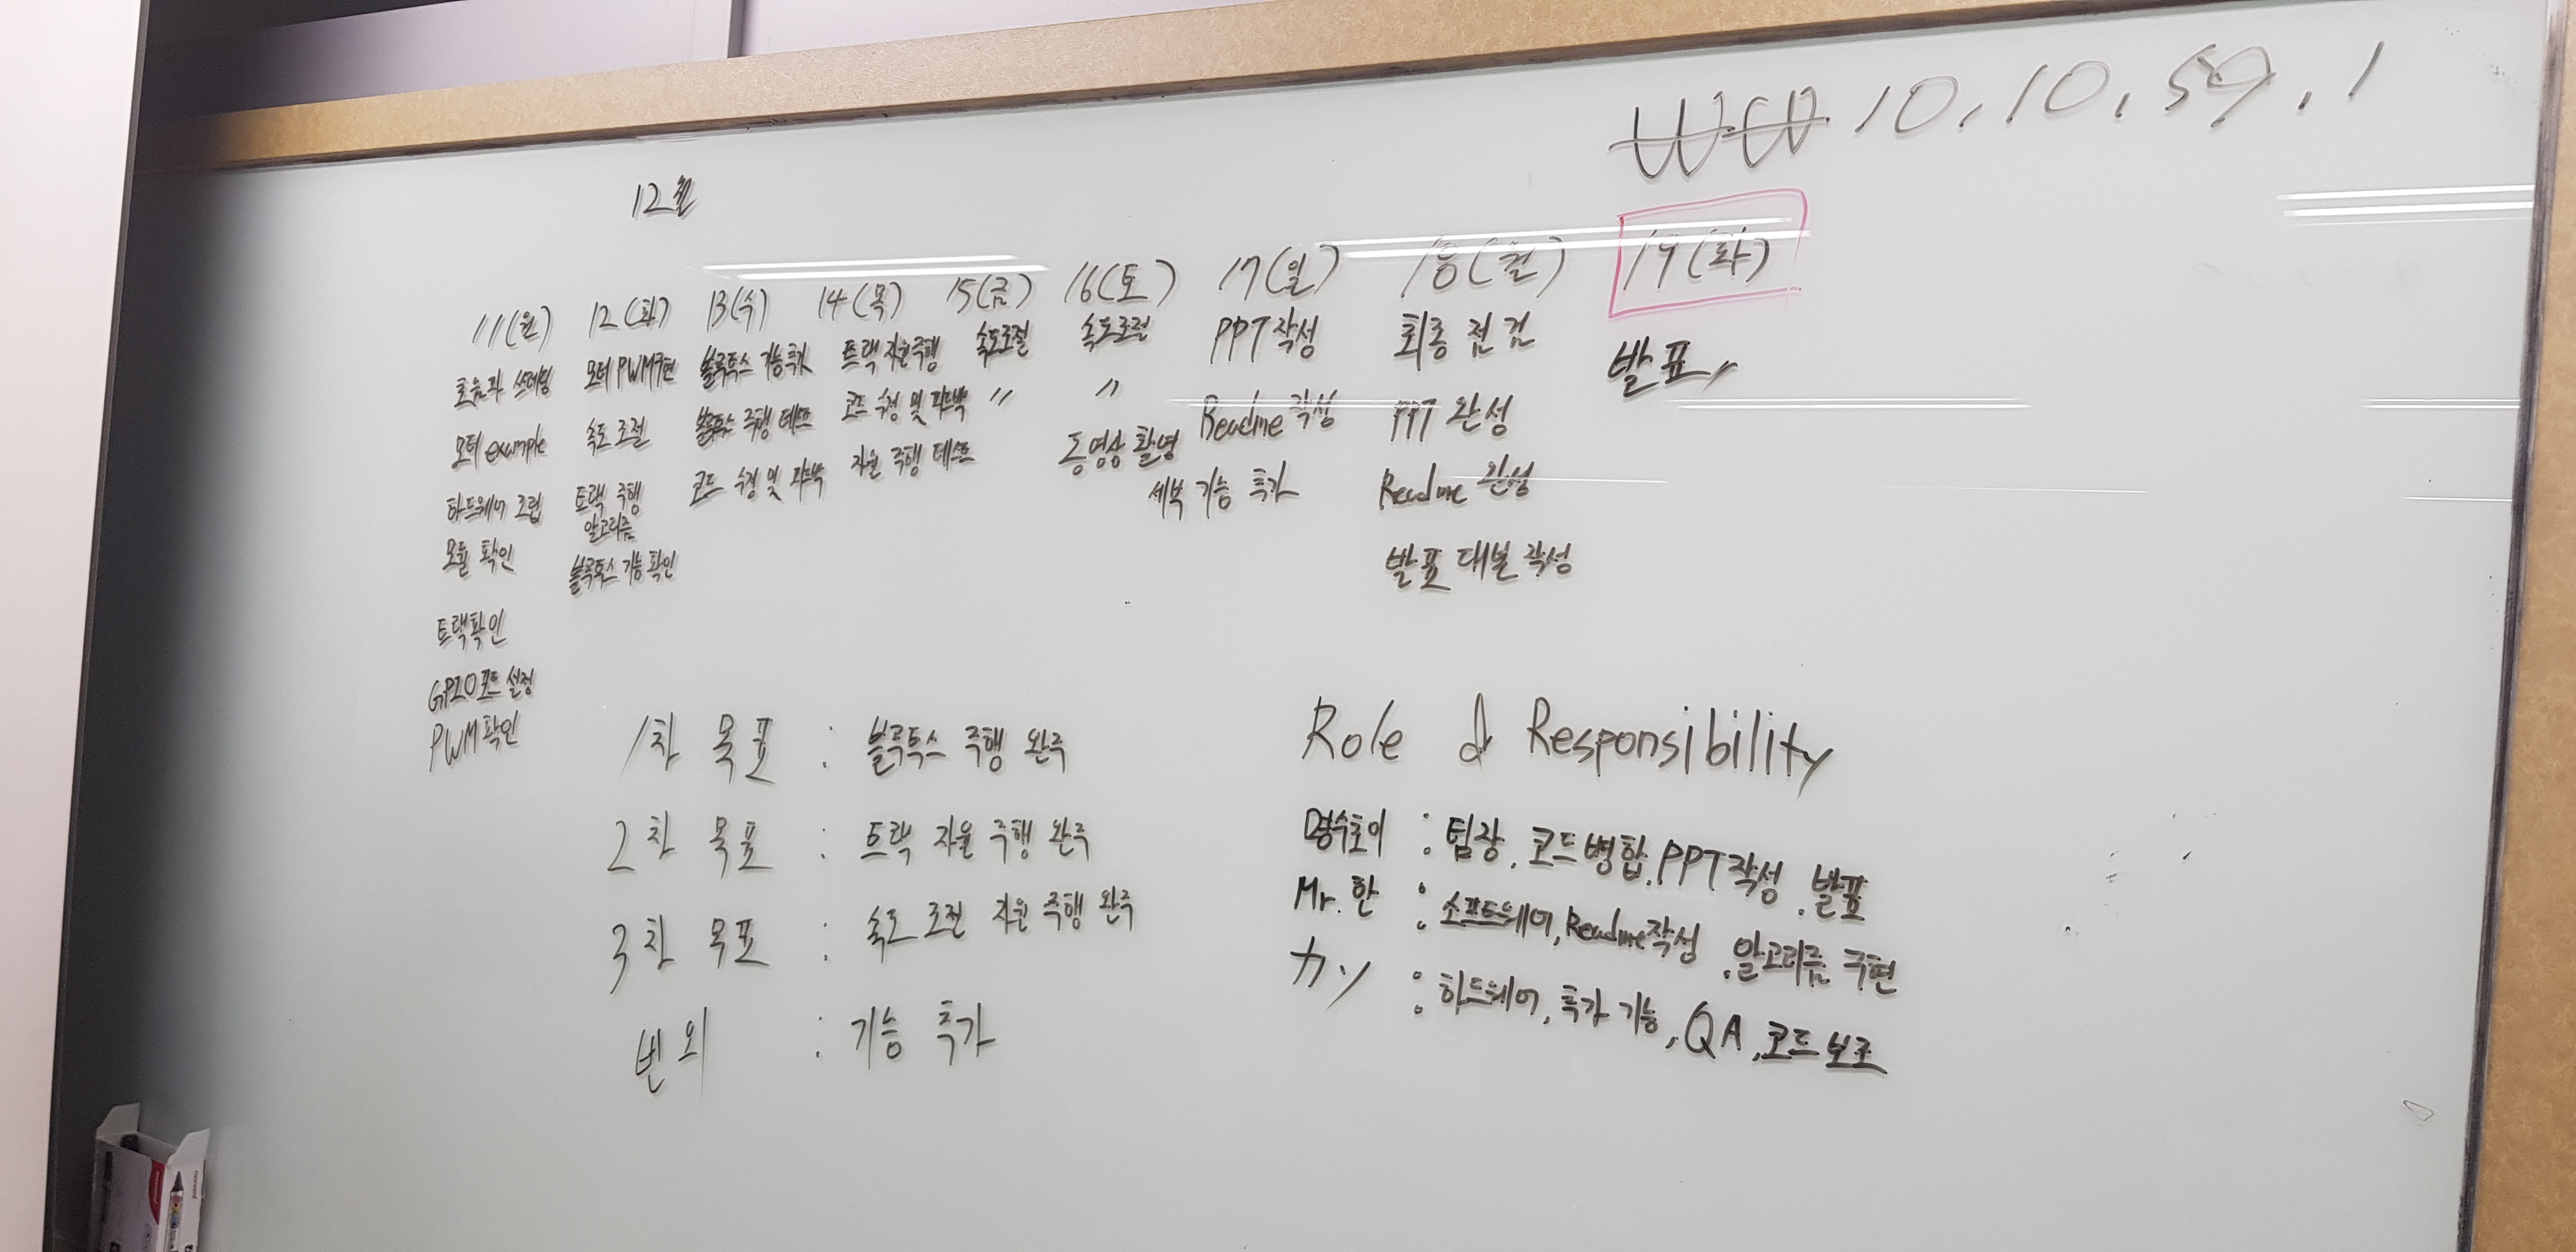 10.10.59.1
12월
11(월) 12(화) 13(수) 14(목) 15(금) 16(토) 17(일) 18(월) 19(화)
초음파 쓰레딩
모터 example
하드웨어 조립
모듈 확인
트랙확인
GPIO포트 설정
PWM 확인
모터 PWM구현
속도 조절
트랙 주행
알고리즘
블루투스 기능 확인
블루투스 기능 추가
블루투스 주행 테스트
코드 수정 및 피드백
트랙 자율주행
코드 수정 및 피드백
자율 주행 테스트
속도조절
〃
속도조절
〃
동영상 촬영
PPT 작성
Readme 작성
세부 기능 추가
최종 점검
PPT 완성
Readme 완성
발표 대본 작성
발표〃
1차 목표 : 블루투스 주행 완주
2차 목표 : 트랙 자율 주행 완주
3차 목표 : 속도 조절 자율 주행 완주
번외 : 기능 추가
Role & Responsibility
명수초이 : 팀장, 코드병합, PPT작성, 발표
Mr. 한 : 소프트웨어, Readme작성, 알고리즘 구현
カソ : 하드웨어, 추가 기능, QA, 코드 보조